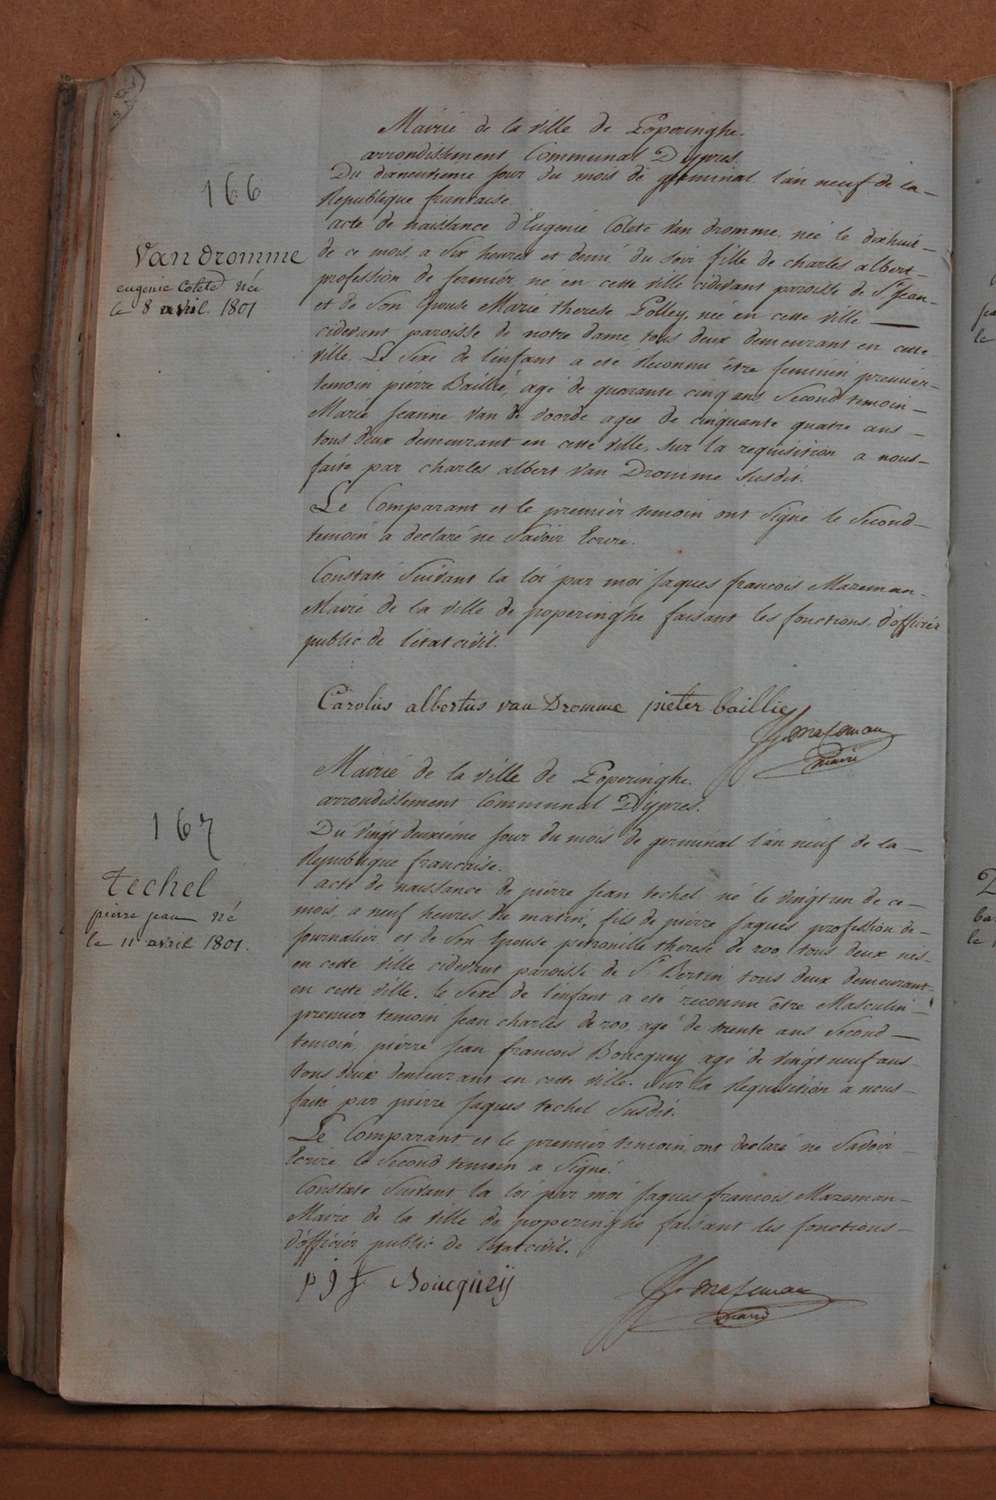 166
Van dromme
eugenie Colete Née
le 8 avril 1801
Mairie de la ville de Poperinghe
arrondissement Communal D'ypres.
Du dixneuvieme jour du mois de germinal l'an neuf de la
Republique francaise.
acte de naissance d'Eugenie Colete Van dromme, née le dixhuit
de ce mois, a six heures et demie du soir fille de charles albert
profession de fermier, né en cette ville cidevant paroisse de St Jean
et de son Epouse Marie therese Polley, née en cette ville
cidevant paroisse de notre dame, tous deux demeurant en cette
ville. Le Sexe de l'enfant a eté reconnu être feminin premier
temoin pierre Baillie, agé de quarante cinq ans Second temoin
Marie Jeanne Van de voorde agee de cinquante quatre ans
tous deux demeurant en cette ville, sur la requisition a nous
faite par charles albert Van Dromme susdit.
Le Comparant et le premier temoin ont Signe le Second
temoin a declaré ne Savoir Ecrire.
Constaté Suivant la loi par moi Jaques francois Mazeman
Maire de la ville de poperinghe faisant les fonctions d'officier
public de l'etat civil.
Carolus albertus van Dromme pieter baillie
J. f. mazeman
maire
167
techel
pierre jean né
le 11 avril 1801.
Mairie de la ville de Poperinghe
arrondissement Communal D'ypres.
Du vingt deuxieme jour du mois de germinal l'an neuf de la
Republique francaise.
acte de naissance de pierre Jean techel né le vingt un de ce
mois, a neuf heures du matin, fils de pierre Jaques profession de
journalier et de Son Epouse petronille therese de roo, tous deux nés
en cette ville cidevant paroisse de St Bertin tous deux demeurant
en cette ville. le Sexe de l'enfant a eté reconnu être Masculin
premier temoin Jean charles de roo, agé de trente ans Second
temoin, pierre Jean francois Boucquey agé de vingt neuf ans
tous deux demeurant en cette ville. Sur la Requisition a nous
faite par pierre Jaques techel Susdit.
Le Comparant et le premier temoin, ont declaré ne Savoir
Ecrire le Second temoin a Signé.
Constaté Suivant la loi par moi Jaques francois Mazeman
Maire de la ville de poperinghe faisant les fonctions
d'officier public de l'etat civil.
p j f Boucqueÿ
J. f. mazeman
maire